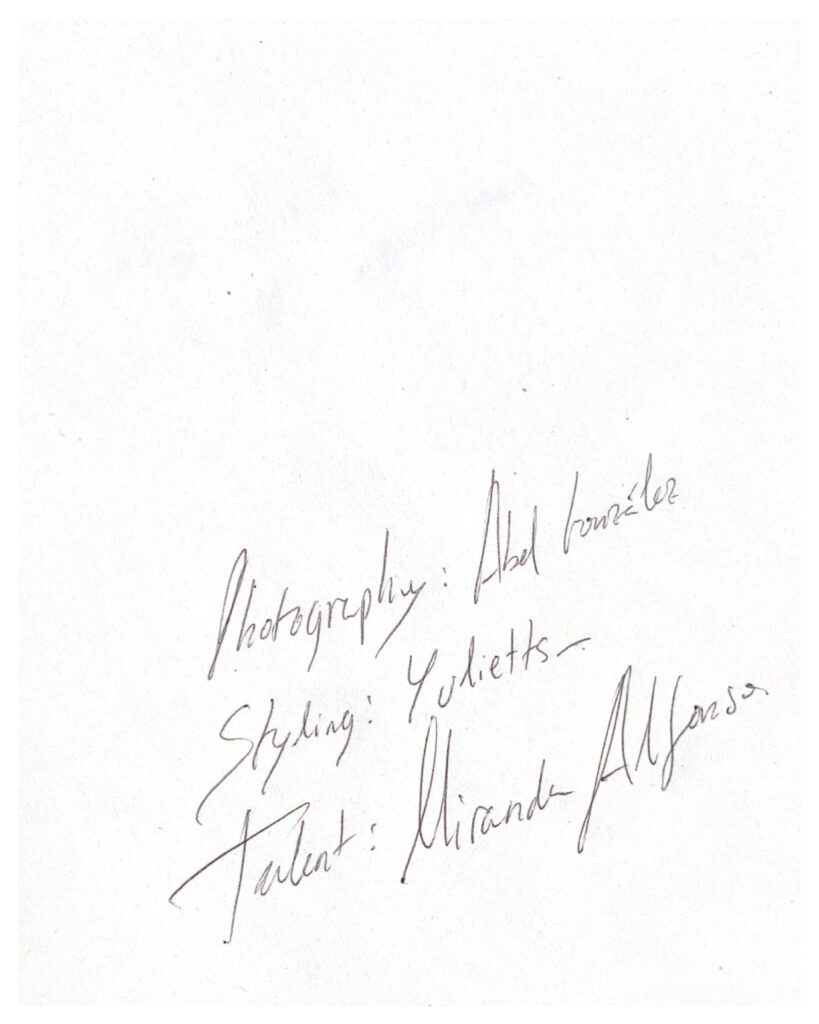 Photography: Abel González
Styling: Yulietts_
Talent: Miranda Alfonso